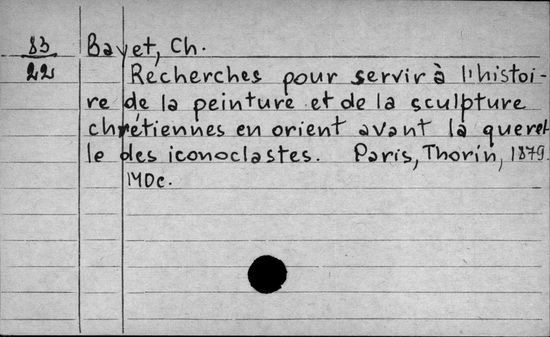 83
22
Bayet, Ch.
Recherches pour servir à l'histoi-
re de la peinture et de la sculpture
chrétiennes en orient avant la querel
le des iconoclastes. Paris, Thorin, 1879.